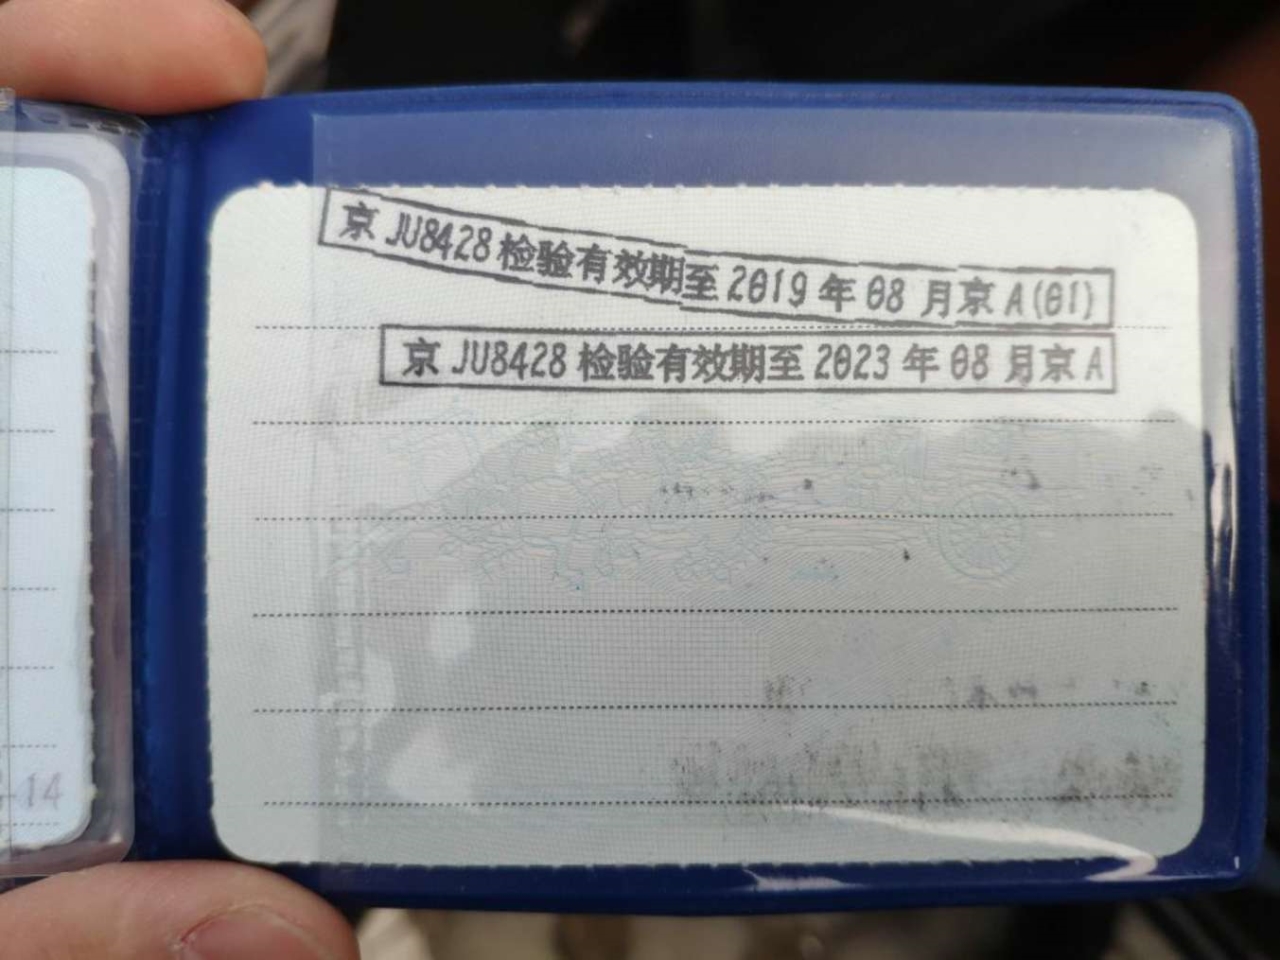 京 JU8428 检验有效期至 2019 年 08 月京 A(01)
京 JU8428 检验有效期至 2023 年 08 月京 A
-14